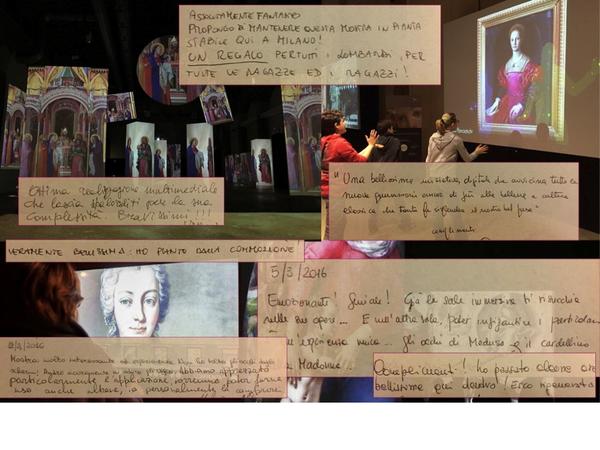 ASSOLUTAMENTE FANTASTICO
PROPONGO DI MANTENERE QUESTA MOSTRA IN PIANTA
STABILE QUI A MILANO!
UN REGALO PER TUTTI I LOMBARDI, PER
TUTTE LE RAGAZZE ED I RAGAZZI!
Ottima realizzazione multimediale
che lascia sbalorditi per la sua
complessità. Bravissimi!!!
"Una bellissima iniziativa, digitale che avvicina tutte le
nuove generazioni ancor di più alle bellezze e cultura
classica che tanto fa risplendere il nostro bel paese"
VERAMENTE BELLISSIMA: HO PIANTO DALLA COMMOZIONE!
5/3/2016
Emozionante! Geniale! Già la sala immersiva ti risucchia
nelle sue opere... E un'altra sala, poter ingrandire i particolari
esperienza unica... gli occhi di Medusa e il cardellino
Madonna...
/2016
Mostra molto interessante ed
particolarmente l'applicazione, vorremmo poter
uso anche altrove, io personalmente la
Complimenti! Ho passato alcune ore
bellissime qui dentro!